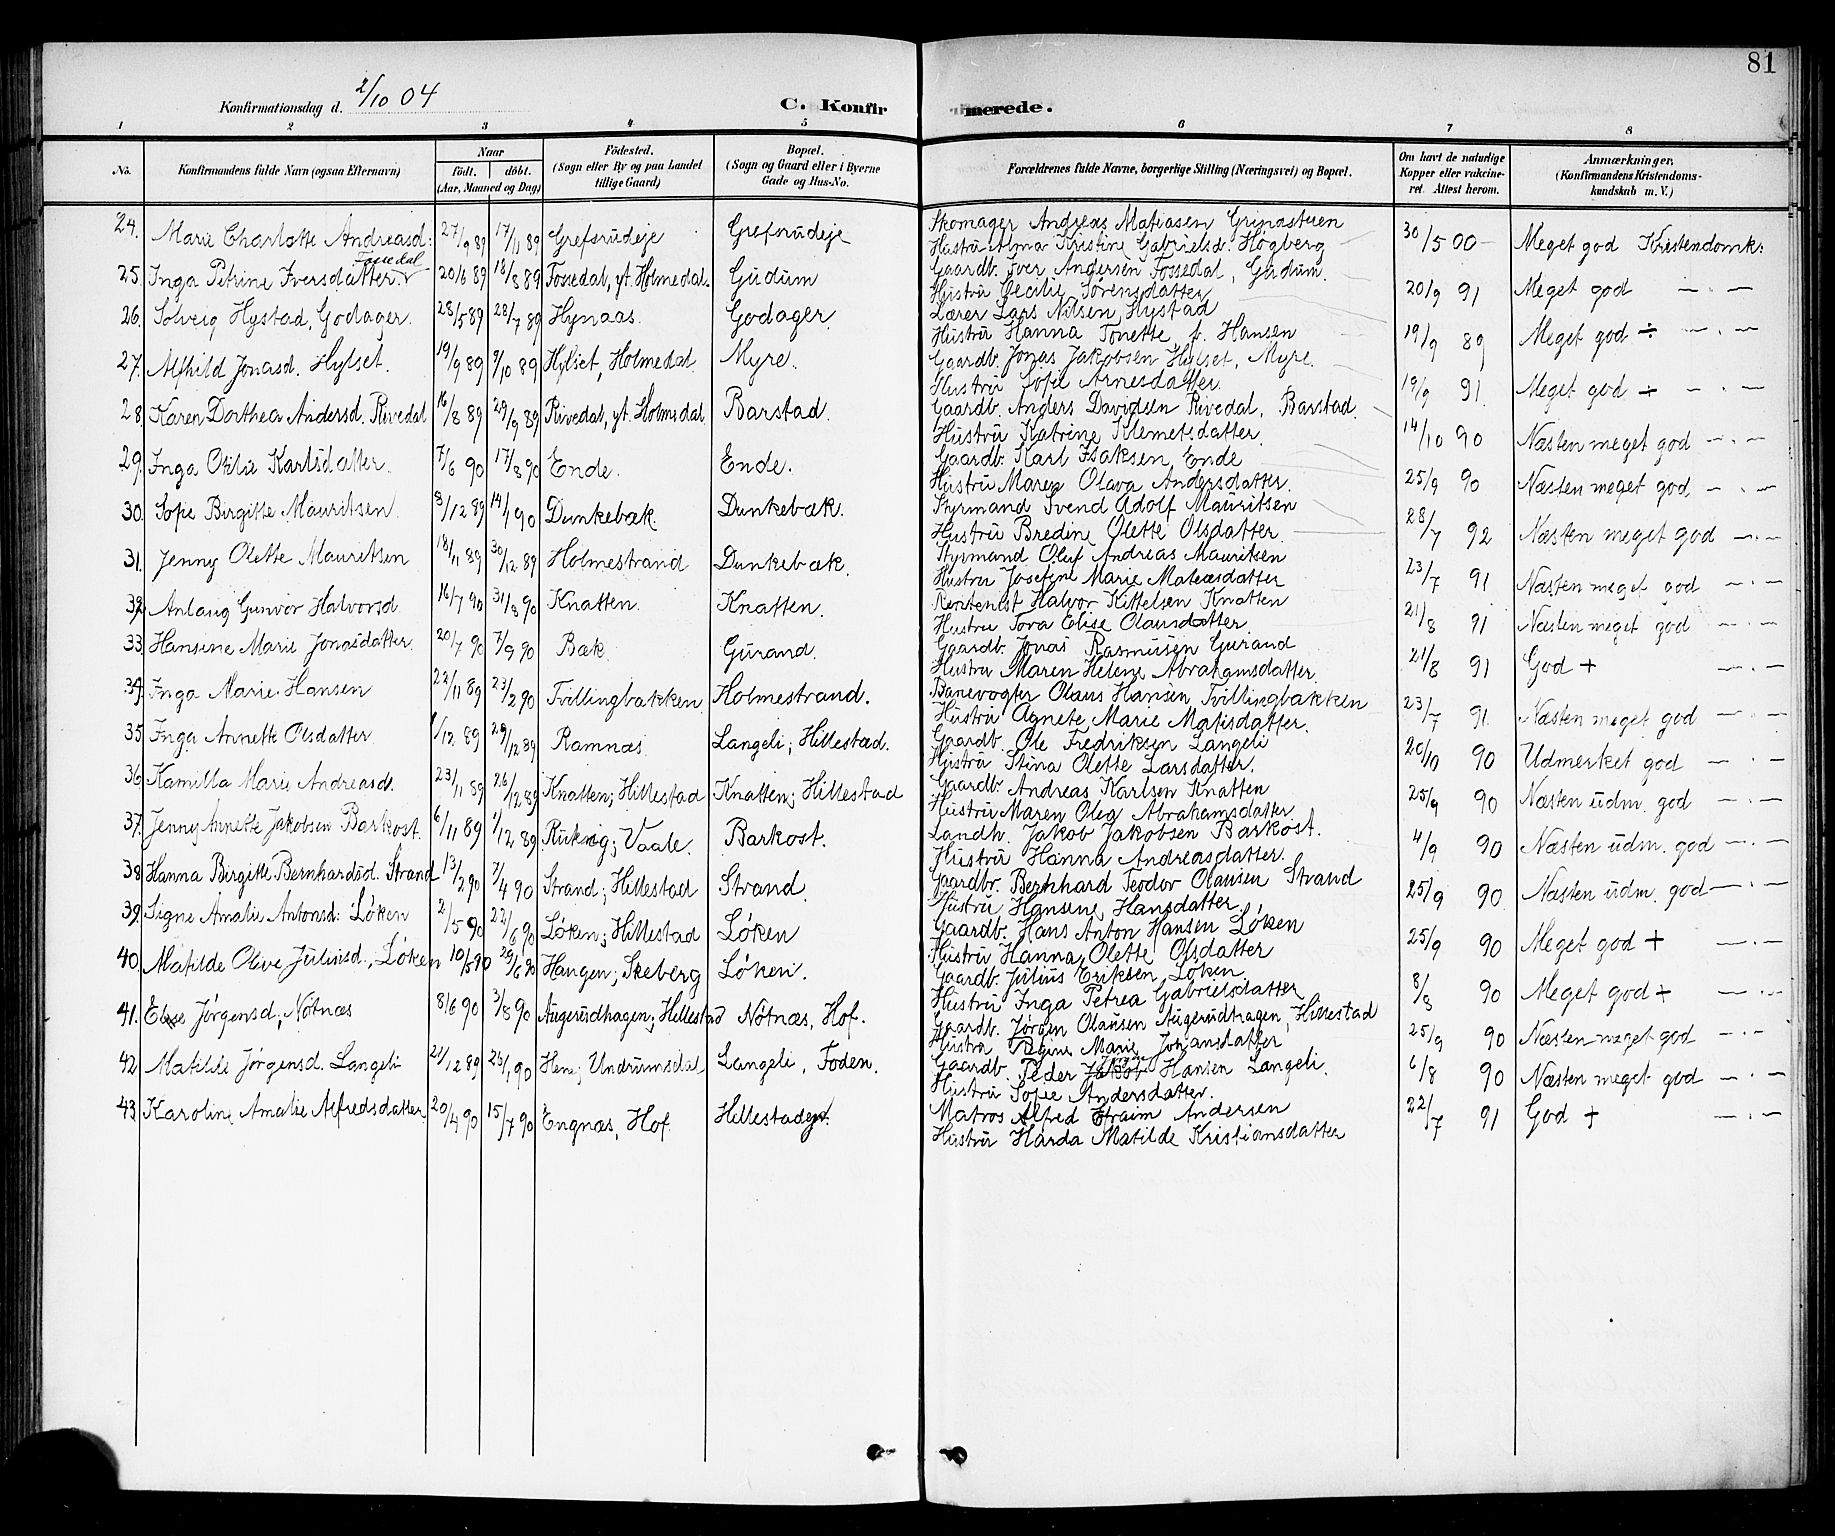 81
Konfirmationsdag d. 2/10 04
C. Konfirmerede.
1 2 3 4 5 6 7 8
No. Konfirmandens fulde Navn (ogsaa Efternavn) Naar født. døbt. (Aar, Maaned og Dag) Fødested. (Sogn eller By og paa Landet tillige Gaard) Bopæl. (Sogn og Gaard eller i Byerne Gade og Hus-No. Forældrenes fulde Navne, borgerlige Stilling (Næringsvei) og Bopæl. Om havt de naturlige Kopper eller vakcineret. Attest herom. Anmærkninger. (Konfirmandens Kristendomskundskab m. V.)
24. Marie Charlotte Andreasd: 27/9 89 17/11 89 Grefsrudeje Grefsrudeje Skomager Andreas Matiasen Grinasteen 30/5 00 — Meget god Kristendomk:
Hustru Alma Kristine Gabrielsd. Høgberg
25. Inga Petrine Iversdatter Fossedal 20/6 89 18/8 89 Fossedal, yt. Holmedal. Gudum Gaardb. Iver Andersen Fossedal, Gudum. 20/9 91 Meget god — . —
Hustru Cecilie Sørensdatter
26. Solveig Hystad, Godager. 28/5 89 28/7 89 Hynaas. Godager. Lærer Lars Nilsen Hystad 19/9 89 Meget god ÷ — . —
Hustru Hanna Tonette f. Hansen
27. Alfhild Jonasd. Hylset. 19/9 89 9/10 89 Hylset, Holmedal. Myre. Gaardb. Jonas Jakobsen Hylset, Myre. 19/9 91. Meget god ÷ — . —
Hustru Sofie Arnesdatter.
28. Karen Dorthea Andersd. Rivedal 16/8 89 29/9 89 Rivedal, yt. Holmedal. Barstad. Gaardb. Anders Davidsen Rivedal, Barstad. 14/10 90 Næsten meget god — . —
Hustru Katrine Klemetsdatter.
29. Inga Otilie Karlsdatter. 7/6 90 17/8 90 Ende. Ende. Gaardb. Karl Isaksen Ende 25/9 90 Næsten meget god — . —
Hustru Maren Olava Andersdatter.
30. Sofie Birgitte Mauritsen. 3/12 89 14/1 90 Dunkebæk. Dunkebæk. Styrmand Svend Adolf Mauritsen 28/7 92 Næsten meget god — . —
Hustru Bredine Olette Olsdatter.
31. Jenny Olette Mauritsen 18/11 89 30/12 89 Holmestrand Dunkebæk. Styrmand Oluf Andreas Mauritsen 23/7 91 Næsten meget god — . —
Hustru Josefine Marie Mateasdatter
32. Anlaug Gunvor Halvorsd 16/7 90 31/8 90 Knatten. Knatten. Rentenist Halvor Kittelsen Knatten 21/8 91 Næsten meget god — . —
Hustru Tora Elise Olausdatter.
33. Hansine Marie Jonasdatter. 20/7 90 7/9 90 Bæk. Gurand. Gaardb. Jonas Rasmusen Gurand 21/8 91 God + — . —
Hustru Maren Helene Abrahamsdatter.
34. Inga Marie Hansen 22/11 89 23/2 90 Tvillingbakken. Holmestrand. Banevogter Olaus Hansen Tvillingbakken 23/7 91. Næsten meget god — . —
Hustru Agnete Marie Matisdatter.
35. Inga Annette Olsdatter 1/12 89 29/12 89 Ramnæs. Langeli; Hillestad. Gaardb. Ole Fredriksen Langeli 20/10 90 Udmerket god — . —
Hustru Stina Olette Larsdatter.
36. Kamilla Marie Andreasd. 23/11 89 26/12 89 Knatten; Hillestad Knatten; Hillestad Gaardb. Andreas Karlsen Knatten 25/9 90 Næsten udm. god — . —
Hustru Maren Olea Abrahamsdatter.
37. Jenny Annette Jakobsen Barkost. 6/11 89 1/12 89 Vaale. Barkost. Landh. Jakob Jakobsen Barkost. 4/9 90 Næsten udm. god — . —
Hustru Hanna Andreasdatter.
38. Hanna Birgitte Bernhardsd. Strand 13/2 90 7/4 90 Strand; Hillestad Strand. Gaardbr. Bernhard Teodor Olausen Strand 25/9 90. Næsten udm. god — . —
Hustru Hansine Hansdatter.
39. Signe Amalie Antonsd: Løken 2/5 90 22/6 90 Løken; Hillestad Løken Gaardb. Hans Anton Hansen Løken 25/9 90 Meget god + — . —
Hustru Hanna Olette Olsdatter
40. Matilde Olive Juliusd., Løken 10/5 90 29/6 90 Haugen; Skeberg Løken. Gaardb. Julius Eriksen, Løken. 8/8 90 Meget god + — . —
Hustru Inga Petrea Gabrielsdatter
41. Elise Jørgensd, Nøtnæs 8/6 90 3/8 90 Augerudhagen; Hillestad Nøtnæs, Hof. Gaardb. Jørgen Olausen Augerudhagen, Hillestad 25/9 90 Næsten meget god — . —
Hustru Regine Marie Johansdatter
42. Matilde Jørgensd. Langeli 21/12 89 26/1 90 Hem; Undrumsdal Langeli, Foden. Gaardb. Peder Jørgen Hansen Langeli. 6/8 90 Næsten meget god — . —
Hustru Sofie Andersdatter.
43. Karoline Amalie Alfredsdatter. 20/4 90 15/7 90 Engnæs, Hof. Hillestadejet. Matros Alfred Efraim Andersen 22/7 91 God + — . —
Hustru Harda Matilde Kristiansdatter